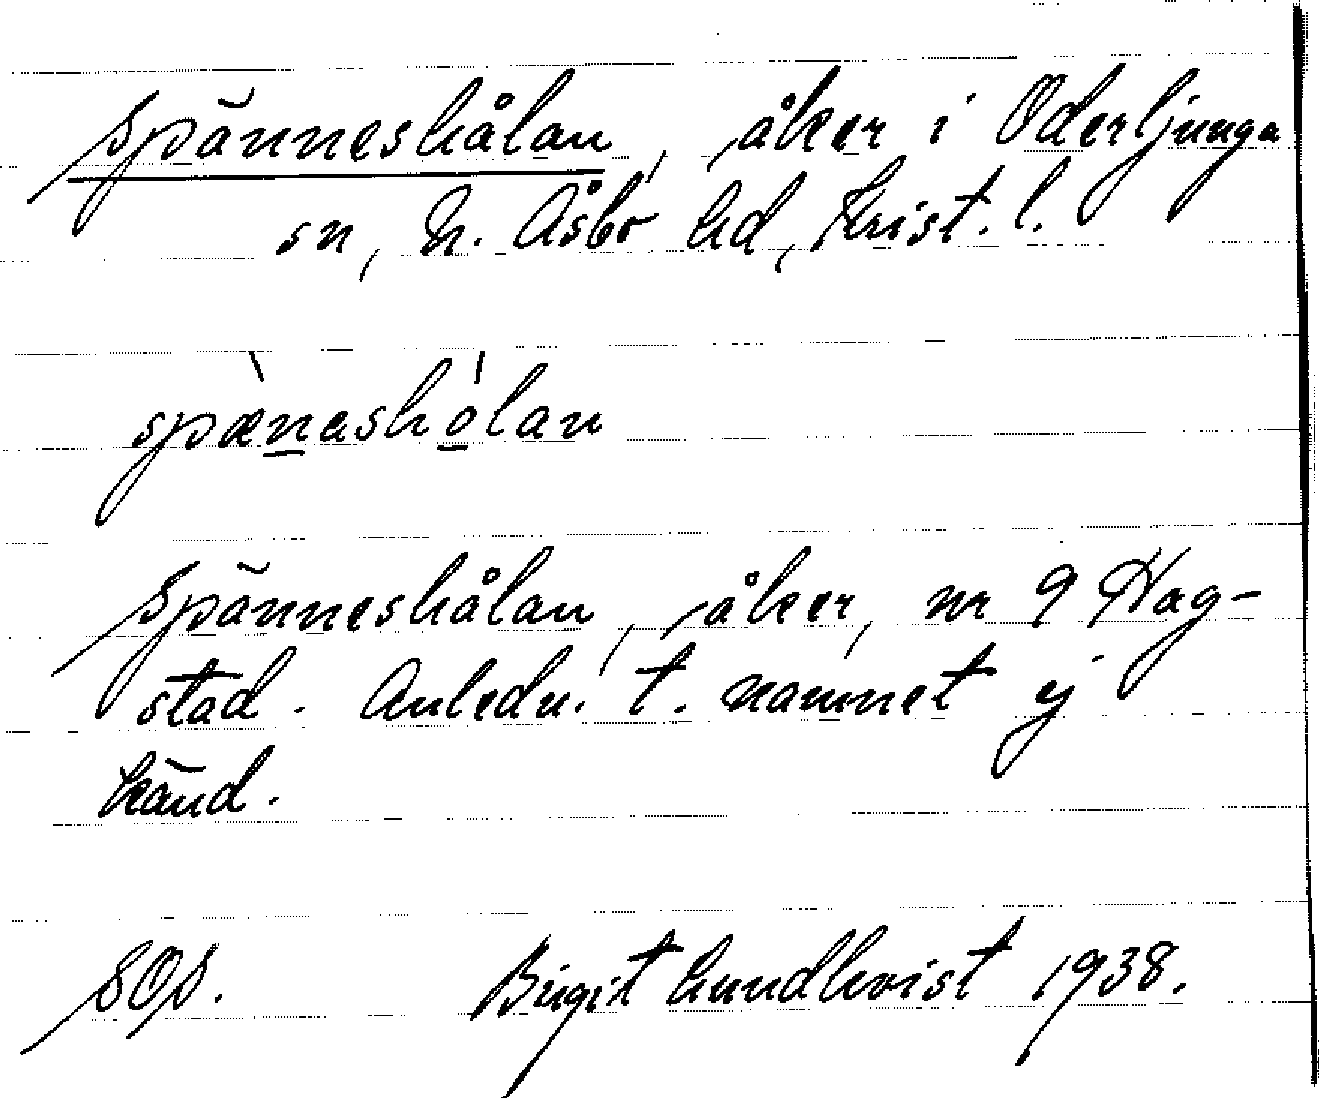 Spänneshålan, åker i Oderljunga
sn, N. Åsbo hd, Krist. l.
spænashòlan
Spänneshålan, åker, nr 9 Hag-
stad. Anledn. t. namnet ej
känd.
SOS. Birgit Lundkvist 1938.